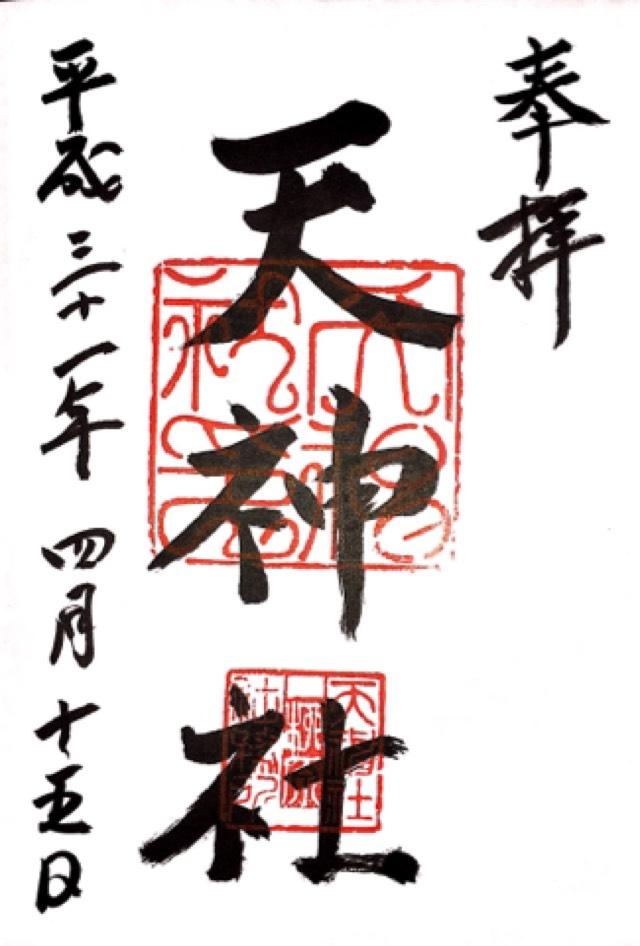 奉拝
天神社
平成三十一年 四月十五日